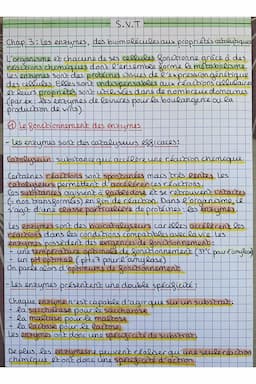 S.V.T
Chap. 3 : Les enzymes, des biomolécules aux propriétés catalytiques
L'organisme et chacune de ses cellules fonctionne grâce à des
réactions chimiques dont l'ensemble forme le métabolisme.
Les enzymes sont des protéines issues de l'expression génétique
des cellules. Elles sont indispensables aux réactions cellulaires
et leurs propriétés sont utilisées dans de nombreux domaines
(par ex : les enzymes de levures pour la boulangerie ou la
production de vins).
① Le fonctionnement des enzymes
- Les enzymes sont des catalyseurs efficaces :
Catalyseur : substance qui accélère une réaction chimique.
Certaines réactions sont spontanées mais très lentes, les
catalyseurs permettent d'accélérer ces réactions.
Ces substances agissent à faible dose et se retrouvent intactes
(= non transformées) en fin de réaction. Dans l'organisme, il
s'agit d'une classe particulière de protéines : les enzymes.
Les enzymes sont des biocatalyseurs car elles accélèrent les
réactions dans les conditions compatibles avec la vie. Les
enzymes possèdent des exigences de fonctionnement :
+ une température optimale de fonctionnement (37°C pour
+ un pH optimal (pH = 7 pour l'amylase)
On parle alors d'optimums de fonctionnement.
Les enzymes présentent une double spécificité :
Chaque enzyme n'est capable d'agir que sur un substrat :
+ la saccharase pour le saccharose
+ la maltase pour le maltose
+ la lactase pour le lactose.
Les enzymes ont donc une spécificité de substrat.
De plus, les enzymes ne peuvent réaliser qu'une seule réaction
chimique et ont donc une spécificité d'action.